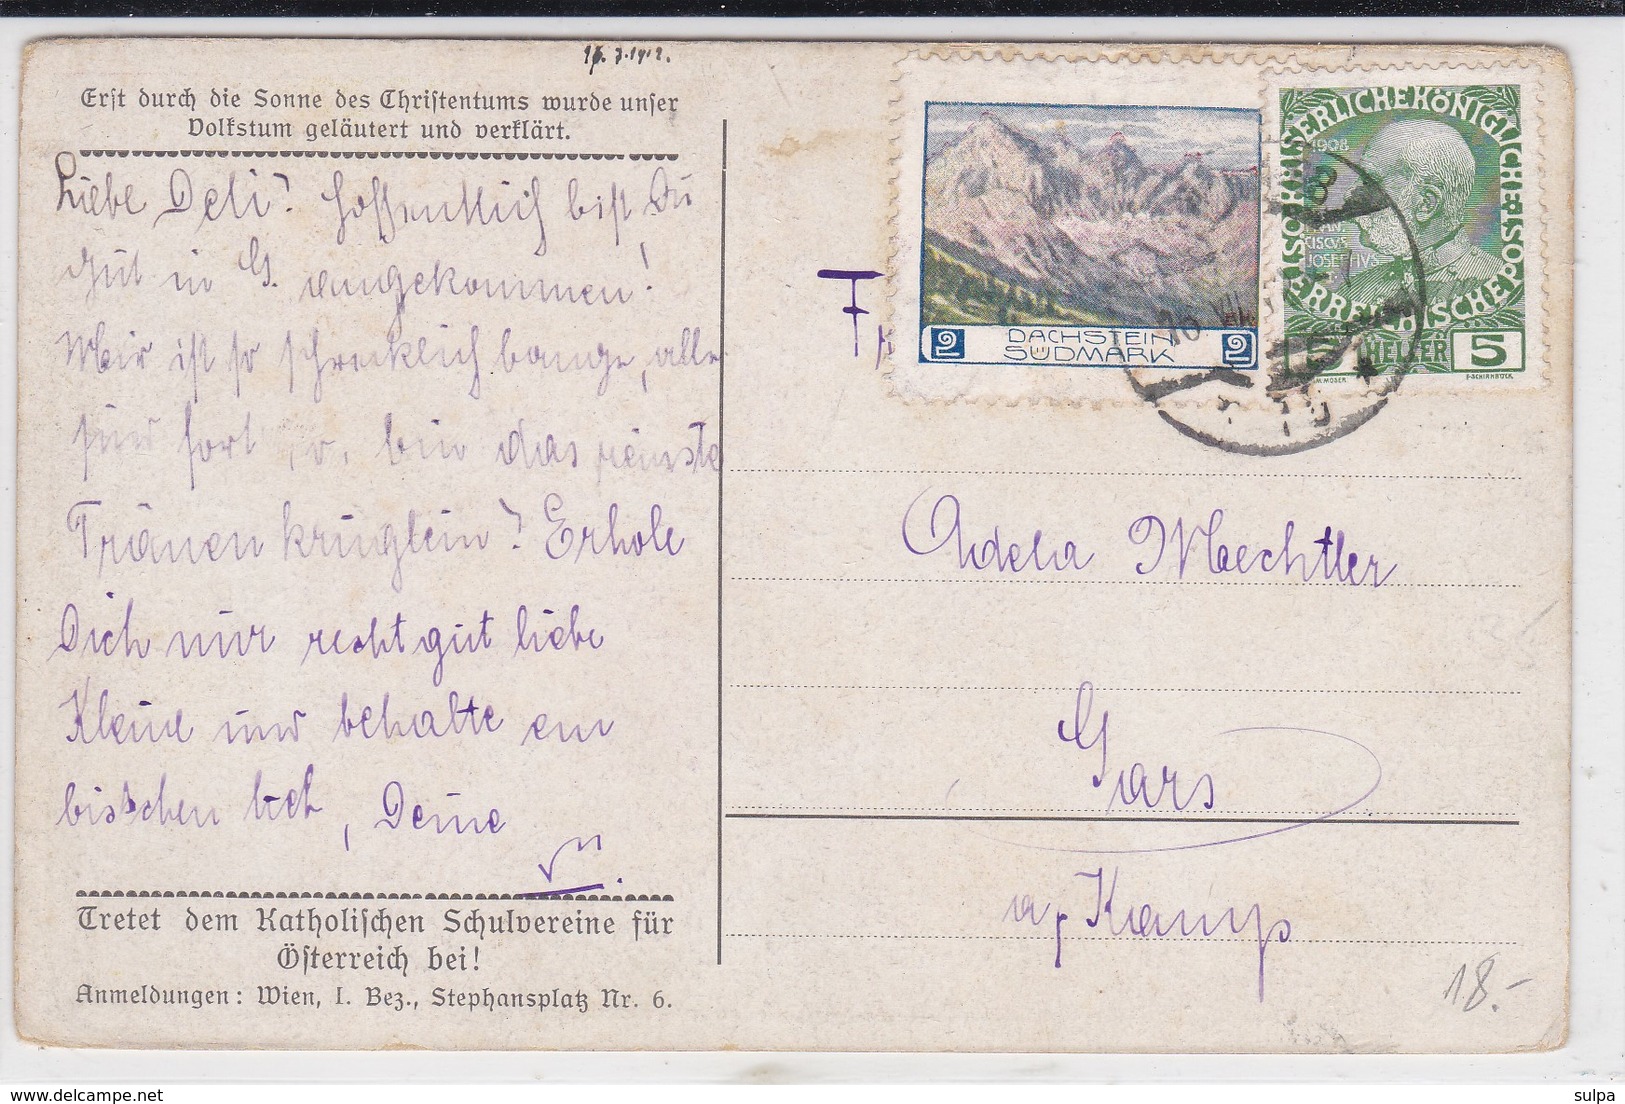 16.7.1912.
Erst durch die Sonne des Christentums wurde unser
Volkstum geläutert und verklärt.
Liebe Deli! Hoffentlich bist Du
gut in G. angekommen!
Mir ist so schrecklich bange, alle
sind fort, u. bin das reinste
Tränenkrüglein! Erhole
Dich nur recht gut liebe
Kleine und behalte ein
bisschen lieb, Deine
Tretet dem Katholischen Schulvereine für
Österreich bei!
Anmeldungen: Wien, I. Bez., Stephansplatz Nr. 6.
T
2 DACHSTEIN 2
SÜDMARK
KAISERLICHEKÖNIGLICHE
ÖSTERREICHISCHE POST
1908
FRAN
CISCVS
JOSEPHVS
5 HELLER 5
K.MOSER F.SCHIRNBÖCK
16 VII
Adela Mechtler
Gars
a/Kamp
18.-
sulpa